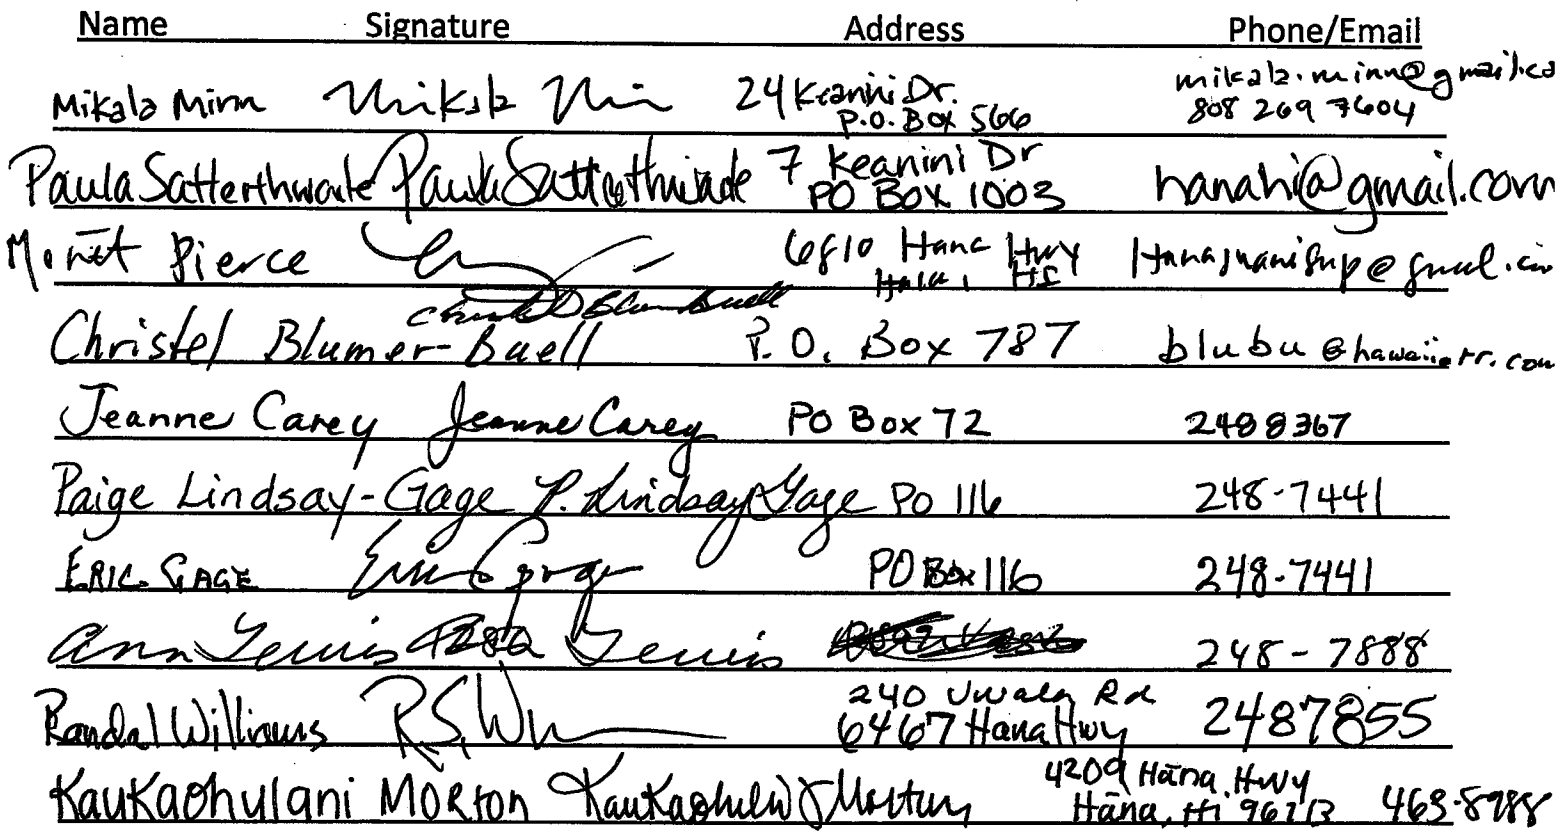 Name Signature Address Phone/Email
Mikala Minn Mikala Minn 24 Keanini Dr. mikala.minn@gmail.co
P.O. Box 566 808 269 7604
Paula Satterthwaite Paula Satterthwaite 7 Keanini Dr hanahi@gmail.com
PO Box 1003
Pierce 6810 Hana Hwy
HI
Christel Blumer-Buell Christel Blumer Buell P.O. Box 787 blubu@hawaii.rr.com
Jeanne Carey Jeanne Carey PO Box 72 2488367
Paige Lindsay-Gage P. Lindsay Gage PO 116 248-7441
ERIC GAGE Eric Gage PO Box 116 248-7441
Ann Lewis Lewis 248-7888
240 Uwala Rd
Randal Williams R.S. W 6467 Hana Hwy 2487855
Kaukaohulani MORTON Kaukaohulani Morton 4209 Hāna Hwy
Hāna, HI 96713 463-8988